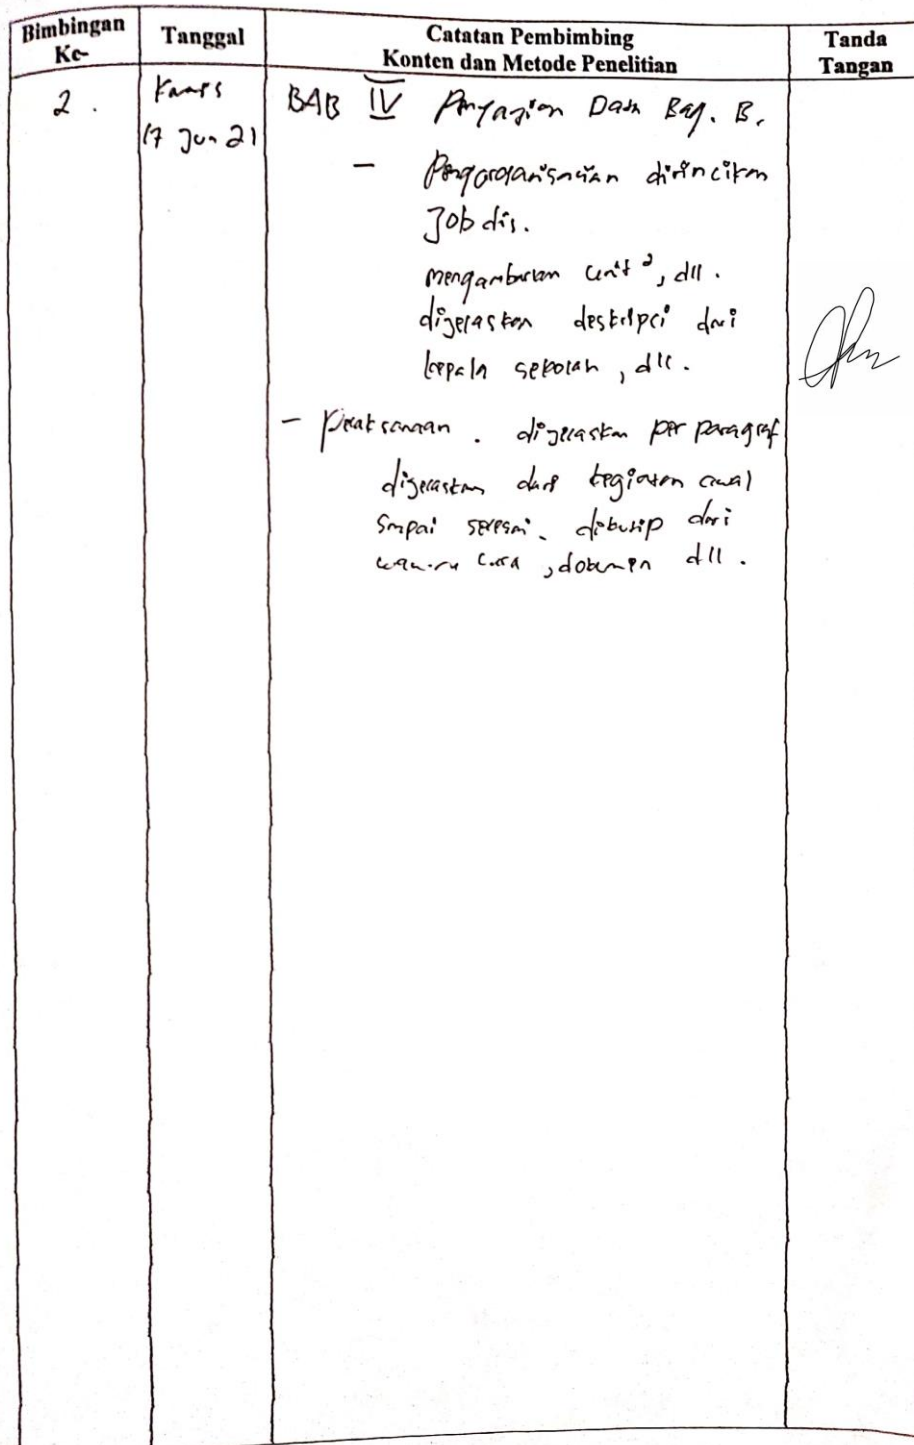 Bimbingan Ke-
Tanggal
Catatan Pembimbing
Konten dan Metode Penelitian
Tanda Tangan
2.
Kamis
17 Jun 21
BAB IV Penyajian Data Bag. B.
- Pengorganisasian dirincikan
Job dis.
mengambarkan unit², dll.
dijelaskan deskripsi dari
kepala sekolah, dll.
- Pelaksanaan. dijelaskan per paragraf
dijelaskan dari kegiatan awal
sampai selesai. dikutip dari
dokumen dll.